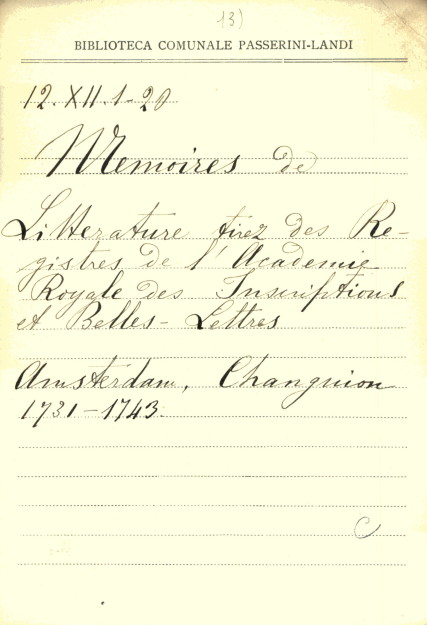 13)
BIBLIOTECA COMUNALE PASSERINI-LANDI
12.XII.1-20
Memoires de
Litterature tirez des Re-
gistres de l'Academie
Royale des Inscriptions
et Belles-Lettres
Amsterdam, Changuion
1731-1743.
C